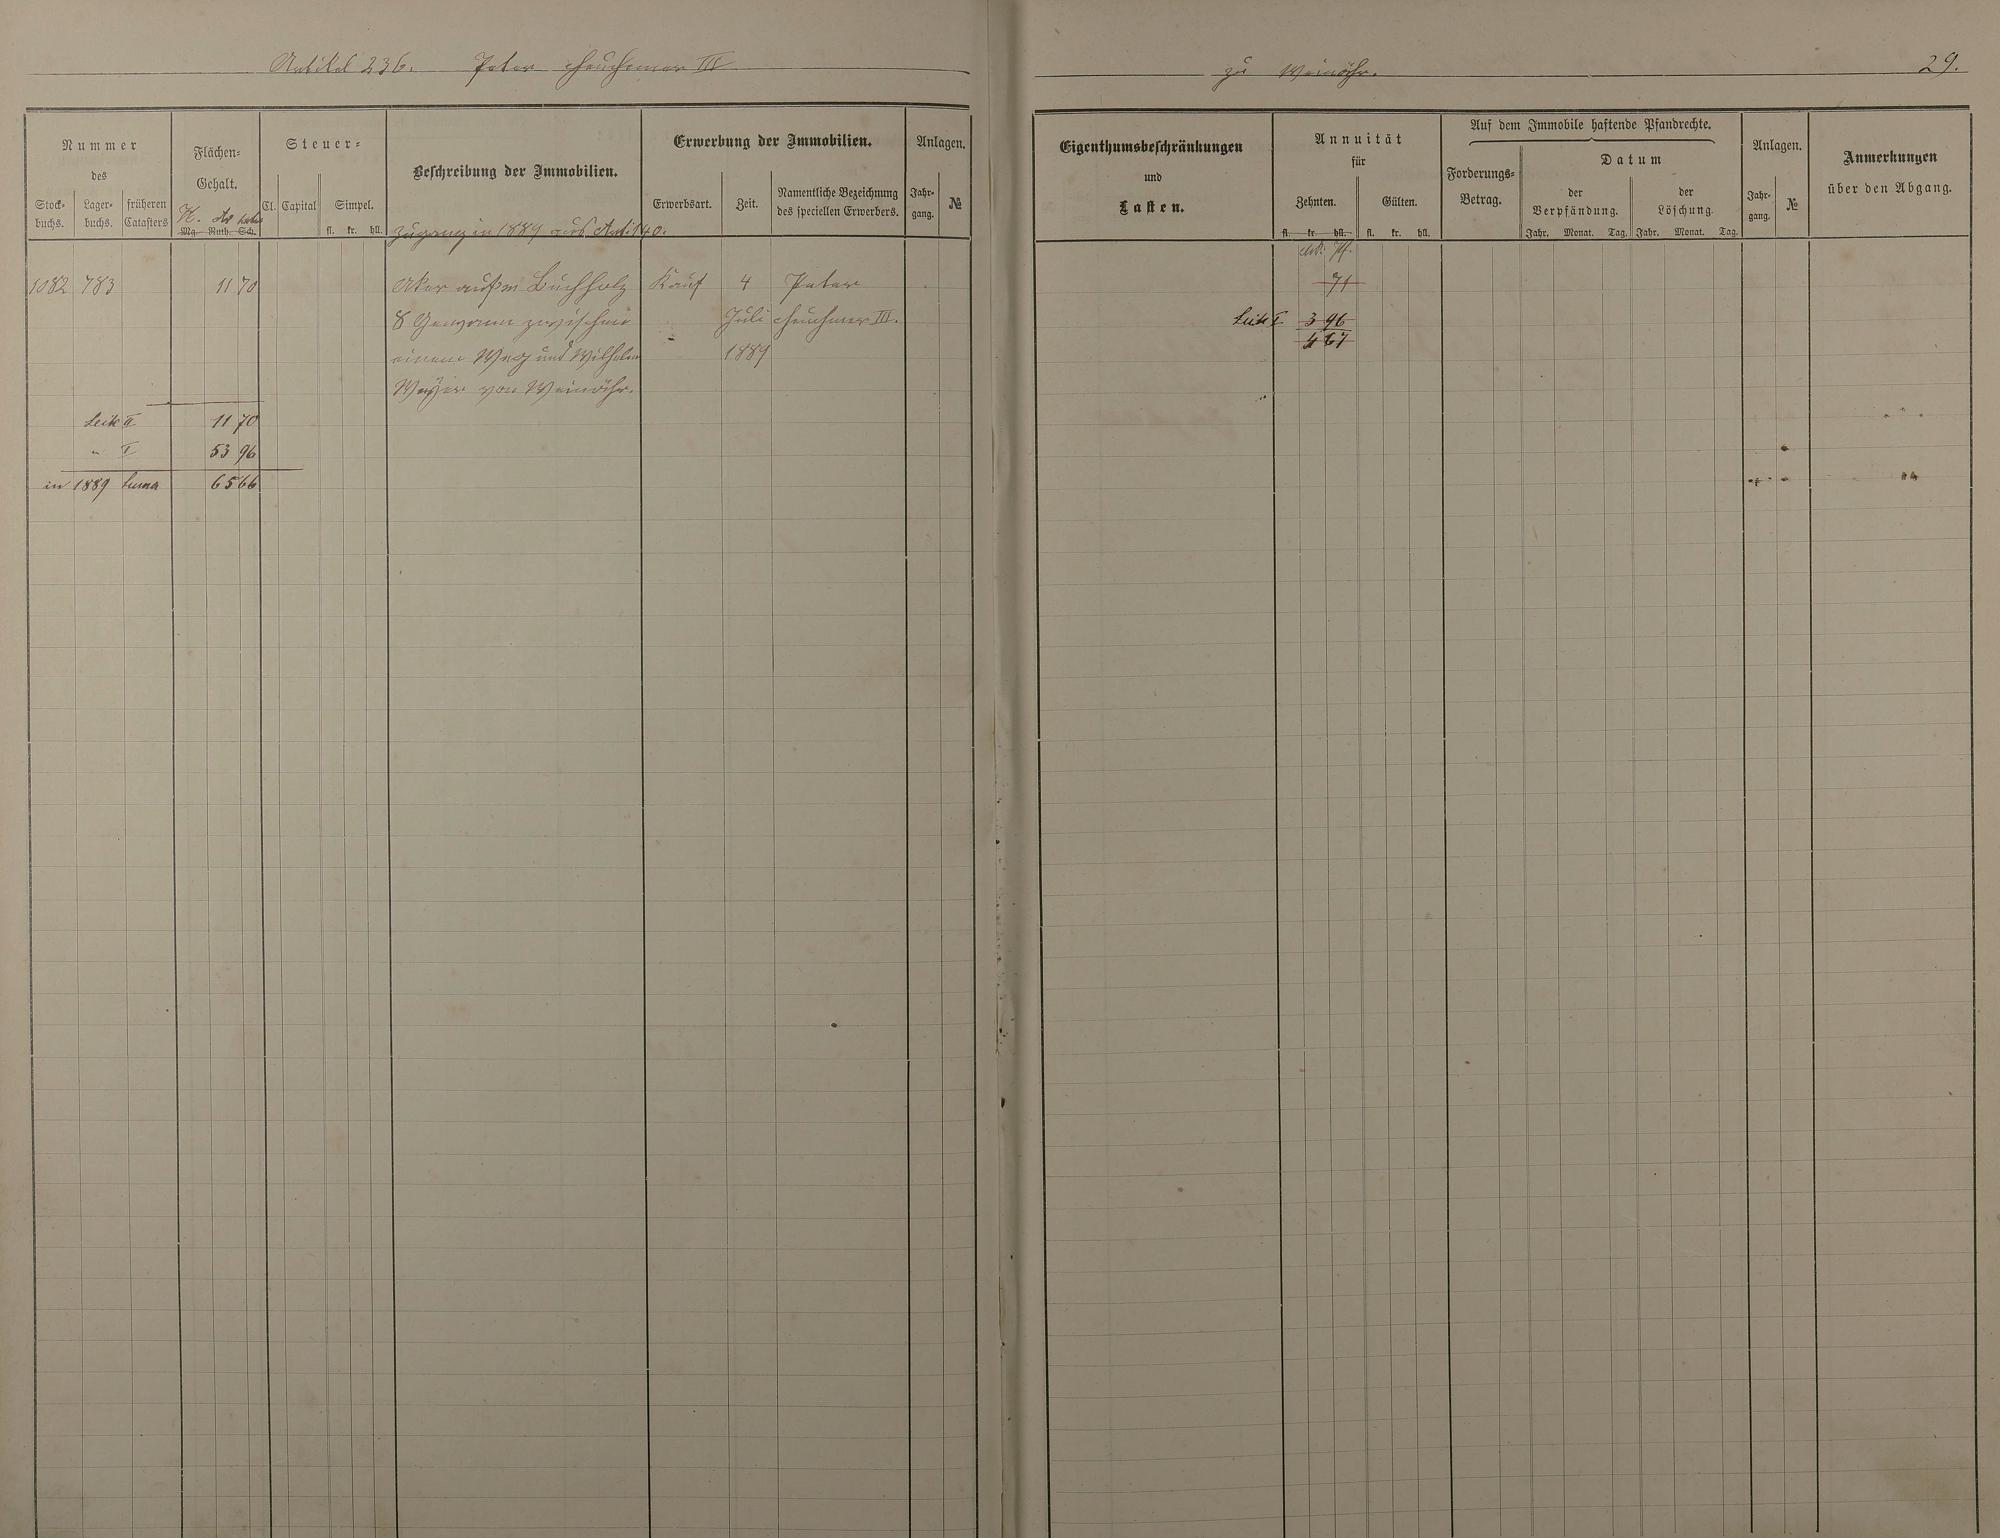 Artikel 236. Peter Heuchemer III
zu Weinähr.
29.
Nummer
des
Stock-
buchs.
Lager-
buchs.
früheren
Catasters
Flächen-
Gehalt.
H. Ar
Mg. Ruth. Sch.
Steuer-
Cl. Capital Simpel.
fl. kr. hll.
Beschreibung der Immobilien.
Zugang in 1889 aus Arti 140.
Erwerbung der Immobilien.
Erwerbsart. Zeit.
Namentliche Bezeichnung
des speciellen Erwerbers.
Anlagen.
Jahr-
gang.
№
1082 783 11 70 Aker aufm Buchholz Kauf 4 Peter
8 Gewann zwischen Juli Heuchemer III.
einem Weg und Wilhelm 1889
Meyer von Weinähr.
Seite II 11 70
" I 53 96
in 1889 Suma 65 66
Eigenthumsbeschränkungen
und
Lasten.
Annuität
für
Zehnten. Gülten.
fl. kr. hll. fl. kr. hll.
Auf dem Immobile haftende Pfandrechte.
Forderungs-
Betrag.
Datum
der
Verpfändung.
der
Löschung.
Jahr. Monat. Tag. Jahr. Monat. Tag.
Anlagen.
Jahr-
gang.
№
Anmerkungen
über den Abgang.
Mk. Pf.
71
Seite I 3 96
4 67